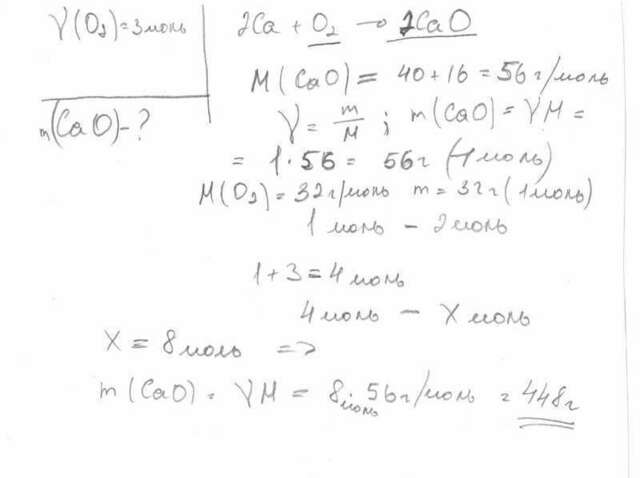 γ(O₂)=3моль
2Ca + O₂ → 2CaO
m(CaO)-?
M(CaO) = 40+16 = 56г/моль
γ = m/M ; m(CaO) = γM =
= 1·56 = 56г (1моль)
M(O₂)=32г/моль m=32г(1моль)
1моль - 2моль
1+3=4моль
4моль - Xмоль
X = 8моль =>
m(CaO) = γM = 8моль·56г/моль = 448г